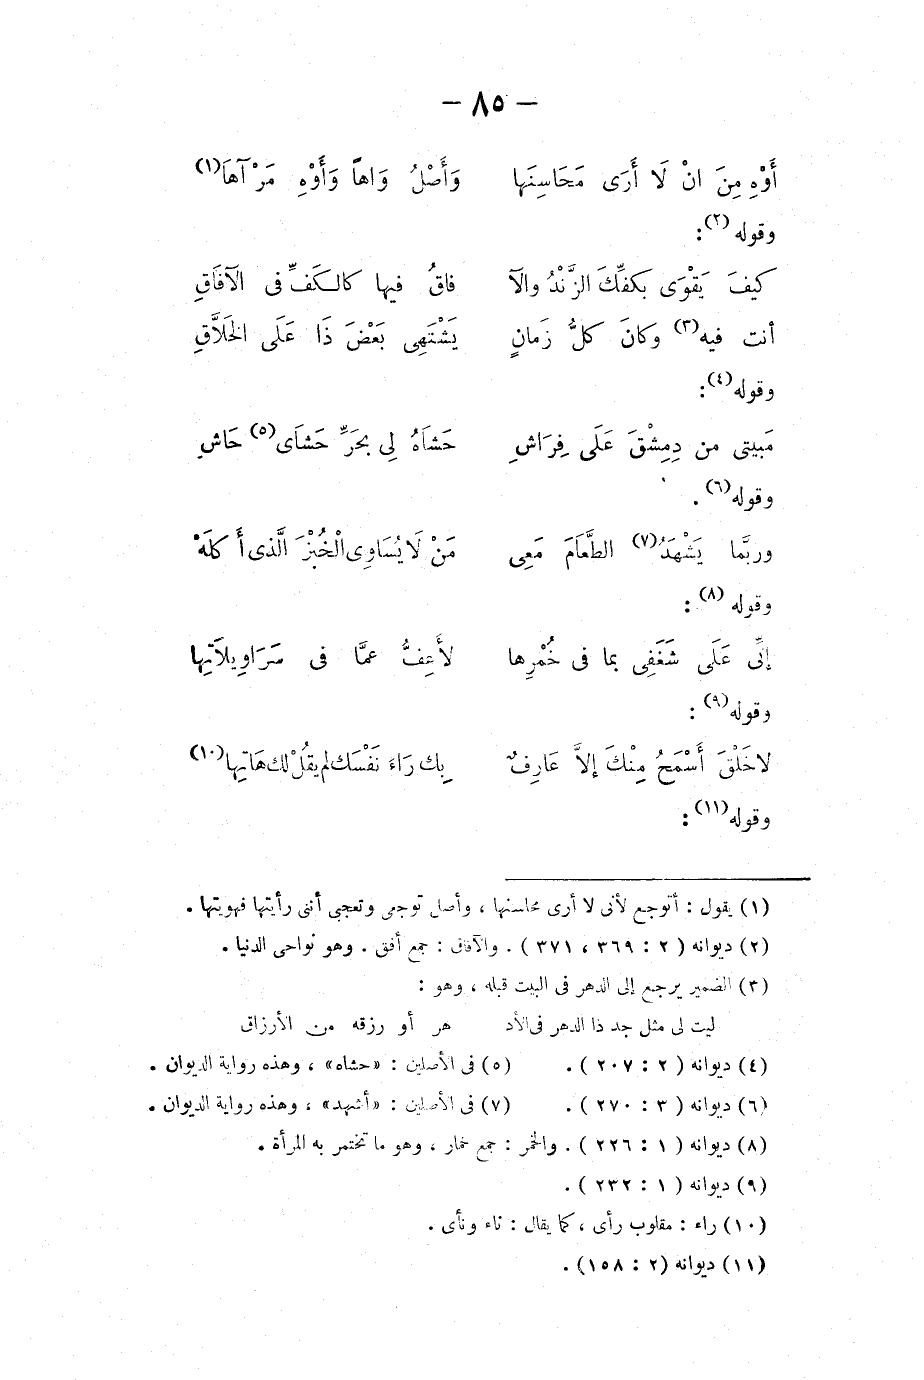 — ٨٥ —
أَوْهِ مِنَ انْ لَا أَرَى مَحَاسِنَها وَأَصْلُ وَاهاً وَأَوْهِ مَرْآهَا(١)
وقوله(٢):
كيفَ يَقْوَى بكفِّكَ الزَّنْدُ والآ فاقُ فيها كالكَفِّ فى الآفَاقِ
أنت فيه(٣) وكانَ كلُّ زَمانٍ يَشْتَهِى بَعْضَ ذَا عَلَى الخَلاَّقِ
وقوله(٤):
مَبيتى من دِمِشْقَ عَلَى فِرَاشِ حَشاَهُ لِى بحَرِّ حَشاَى(٥) حَاشِ
وقوله(٦).
وربَّما يَشْهَدُ(٧) الطَّعَامَ مَعِى مَنْ لَا يُسَاوِى الْخُبْزَ الَّذى أَكلَهْ
وقوله (٨):
إنِّى عَلَى شَغَفِى بما فى خُمْرِها لأَعِفُّ عمَّا فى سَرَاوِيلاَتِها
وقوله(٩):
لاخَلْقَ أَسْمَحُ مِنْكَ إلاَّ عَارِفٌ بِك رَاءَ نَفْسَك لم يقُلْ لك هَاتِها(١٠)
وقوله(١١):
(١) يقول : أتوجع لأنى لا أرى محاسنها ، وأصل توجعى وتعجبى أننى رأيتها فهويتها .
(٢) ديوانه ( ٢ : ٣٦٩ ، ٣٧١ ) . والآفاق : جمع أفق . وهو نواحى الدنيا .
(٣) الضمير يرجع إلى الدهر فى البيت قبله ، وهو :
ليت لى مثل جد ذا الدهر فى الأد هر أو رزقه من الأرزاق
(٤) ديوانه ( ٢ : ٢٠٧ ) . (٥) فى الأصلين : «حشاه» ، وهذه رواية الديوان .
(٦) ديوانه ( ٣ : ٢٧٠ ) . (٧) فى الأصلين : «أشهد» ، وهذه رواية الديوان .
(٨) ديوانه ( ١ : ٢٢٦ ) . والخمر : جمع خمار ، وهو ما تختمر به المرأة .
(٩) ديوانه ( ١ : ٢٣٢ ) .
(١٠) راء : مقلوب رأى ، كما يقال : ناء ونأى .
(١١) ديوانه (٢ : ١٥٨) .